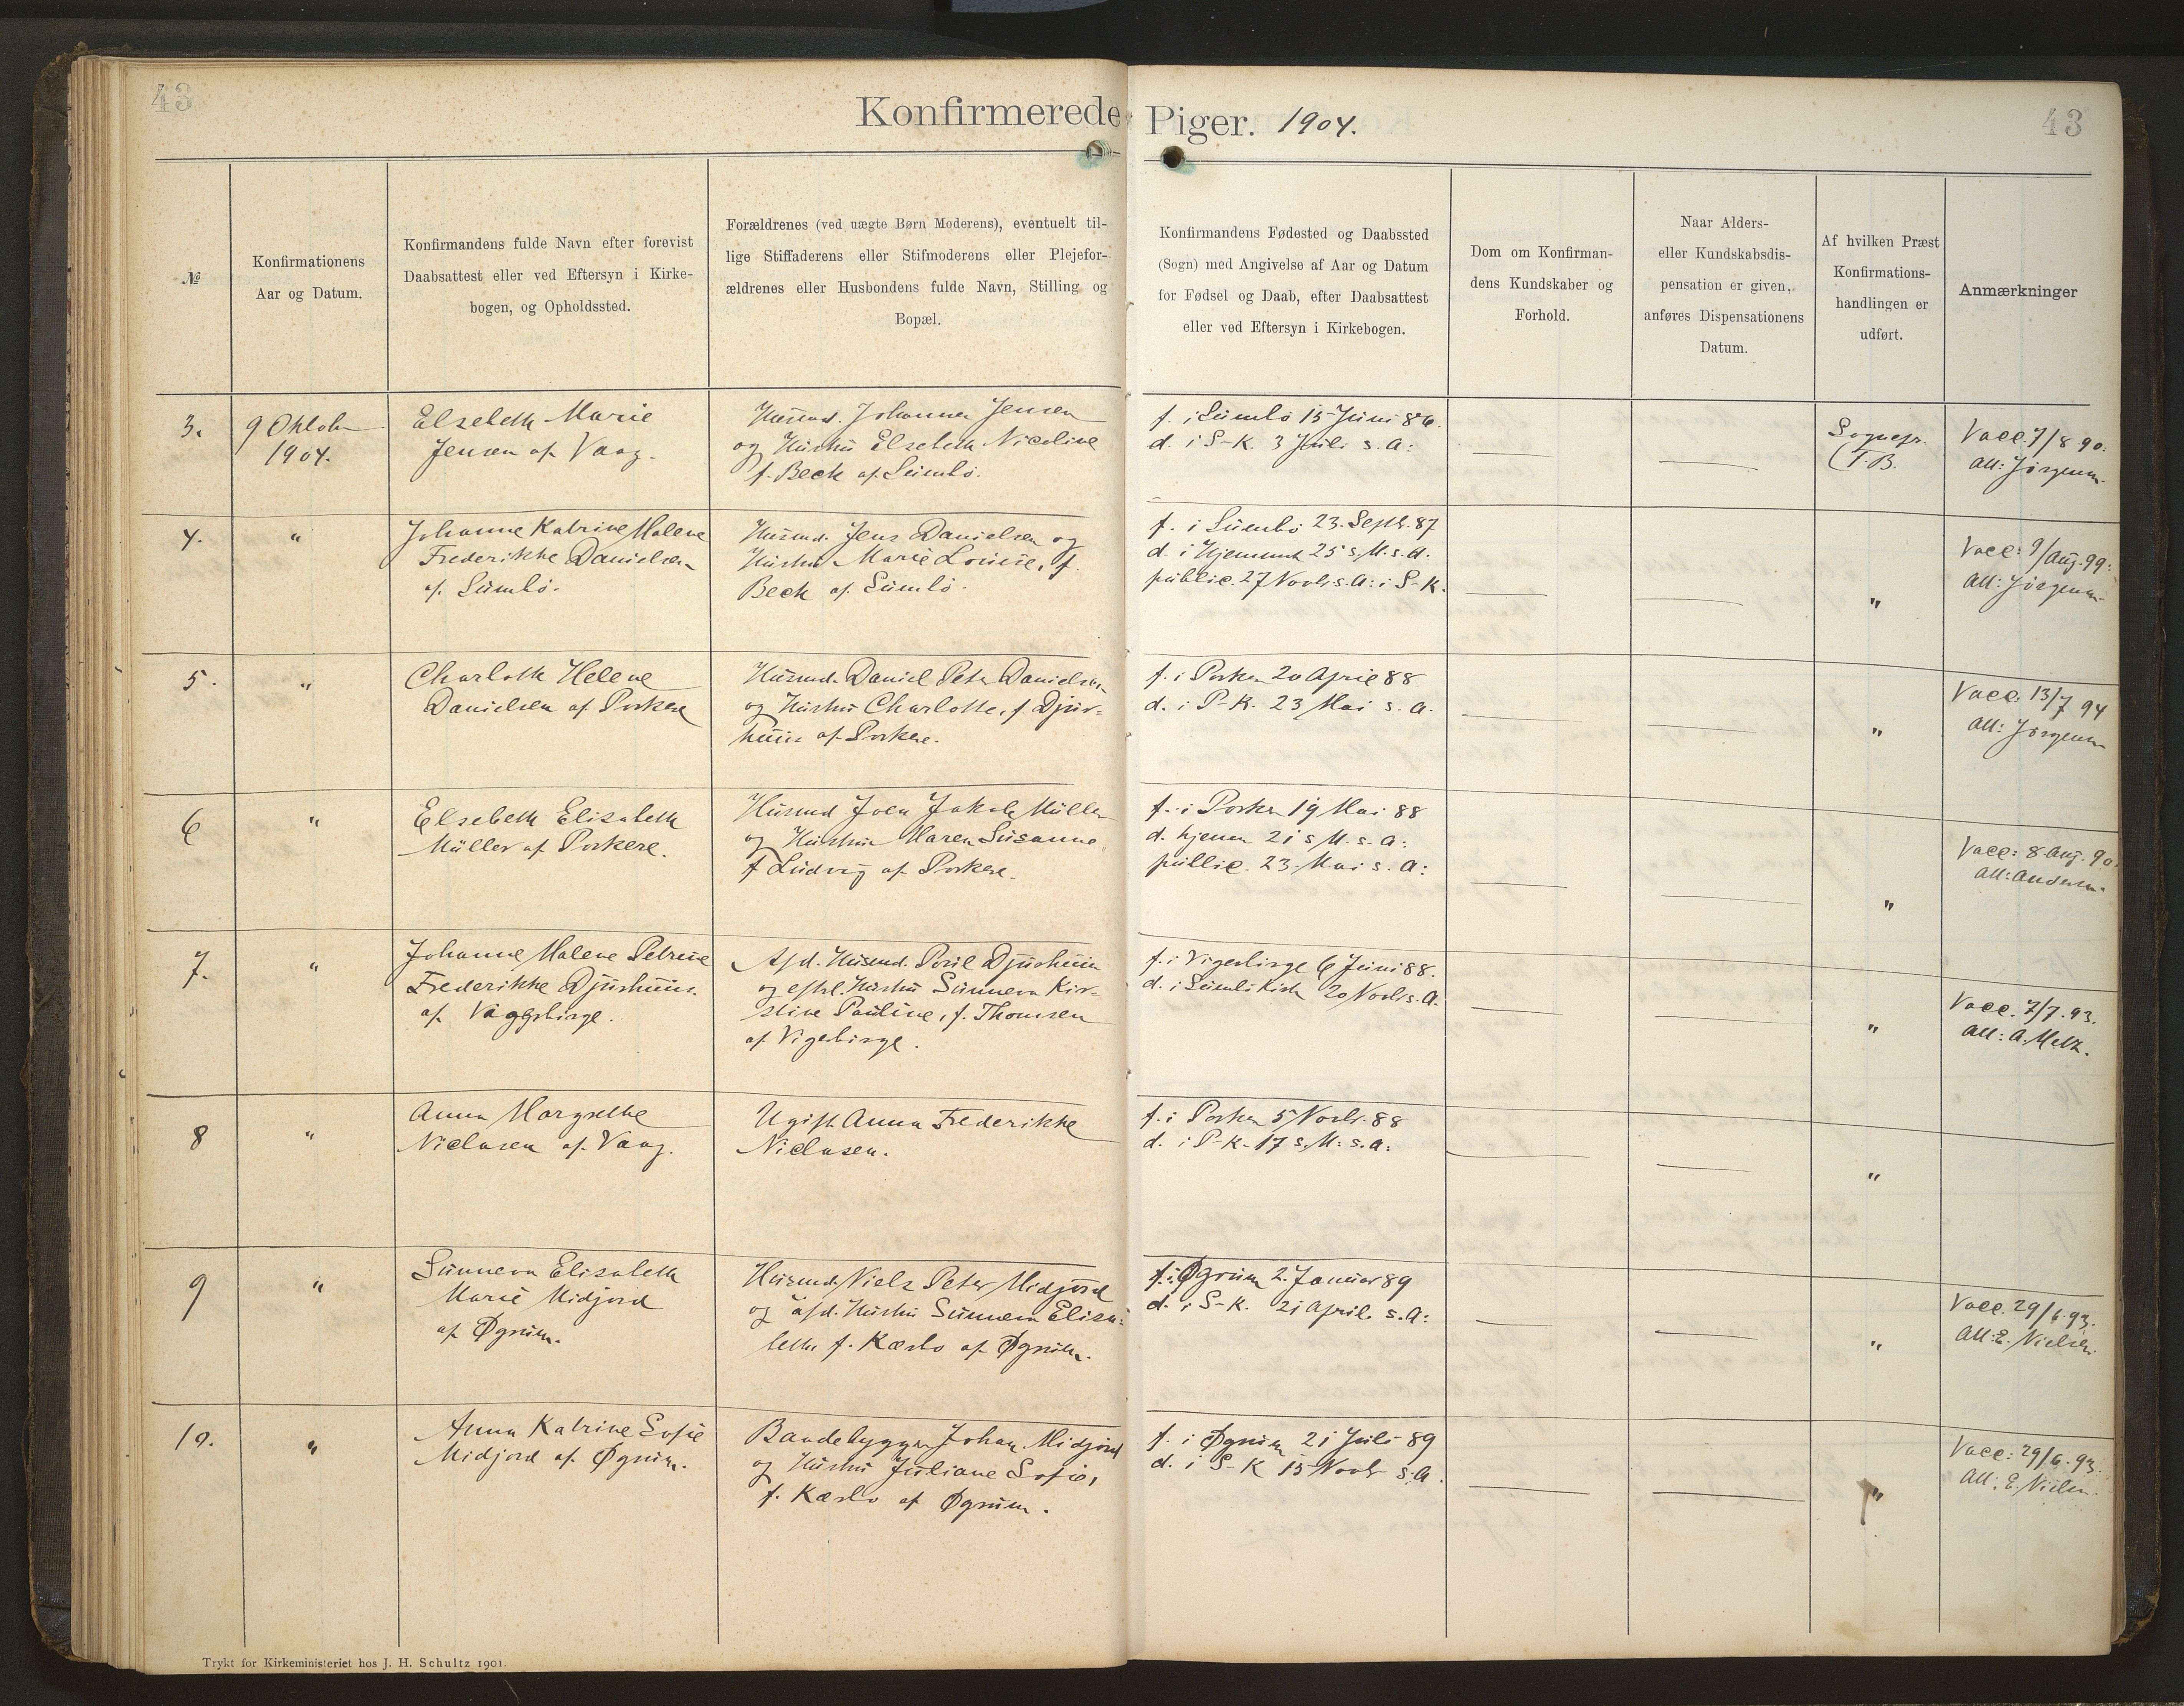 43
Konfirmerede Piger. 1904.
43
№
Konfirmationens
Aar og Datum.
Konfirmandens fulde Navn efter forevist
Daabsattest eller ved Eftersyn i Kirke-
bogen, og Opholdssted.
Forældrenes (ved uægte Børn Moderens), eventuelt til-
lige Stiffaderens eller Stifmoderens eller Plejefor-
ældrenes eller Husbondens fulde Navn, Stilling og
Bopæl.
Konfirmandens Fødested og Daabssted
(Sogn) med Angivelse af Aar og Datum
for Fødsel og Daab, efter Daabsattest
eller ved Eftersyn i Kirkebogen.
Dom om Konfirman-
dens Kundskaber og
Forhold.
Naar Alders-
eller Kundskabsdis-
pensation er given,
anføres Dispensationens
Datum.
Af hvilken Præst
Konfirmations-
handlingen er
udført.
Anmærkninger
3.
9 Oktobr
1904.
Elsebeth Marie
Jensen af Vaag.
Husmd. Johannes Jensen
og Hustru Elsebeth Nicoline
f. Beck af Sumbø.
f. i Sumbø 15 Juni 86.
d. i S-K. 3 Juli s. A:
Sognepr.
T.B.
Vacc. 7/8 90.
Att: Jørgensen
4.
"
Johanne Katrine Malene
Frederikke Danielsen
af Sumbø.
Husmd. Jens Danielsen og
Hustru Marie Louise, f.
Beck af Sumbø.
f. i Sumbø 23. Septr. 87
d. i Hjemmet 25 s. M. s. A.
public. 27 Novbr s. A: i S-K.
"
Vacc: 9/Aug. 99:
Att: Jørgensen
5.
"
Charlotte Helene
Danielsen af Porkere
Husmd. Daniel Peter Danielsen
og Hustru Charlotte, f. Djur-
huus af Porkere.
f. i Porkere 20 April 88
d. i P-K. 23 Mai s. A.
"
Vacc. 13/7 94
Att: Jørgensen
6
"
Elsebeth Elisabeth
Müller af Porkere.
Husmd Joen Jakob Müller
og Hustru Maren Susanne
f Ludvig af Porkere.
f. i Porkere 19 Mai 88
d. hjemme 21 s. M. s. A:
public. 23. Mai s. A:
"
Vacc: 8. Aug. 90.
Att: Andersen.
7.
"
Johanne Malene Petrine
Frederikke Djurhuus.
af Vaagsbirge.
Afd. Husmd. Poul Djurhuus
og eftrl. Hustru Sunneva Kir-
stine Pauline, f. Thomsen
af Vigerbirge.
f. i Vigerbirge 6 Juni 88.
d. i Sumbø Kirke 20 Novbr s. A.
"
Vacc. 7/7. 93.
Att: A. Melz.
8
"
Anna Margrethe
Niclasen af Vaag.
Ugift Anna Frederikke
Niclasen.
f. i Porkere 5 Novbr. 88
d. i P-K. 17 s. M: s. A:
"
9
"
Sunneva Elisabeth
Marie Midjord
af Øgrum.
Husmd. Niels Peter Midjord
og afd. Hustru Sunneva Elisa-
beth f. Kærbo af Øgrum.
f. i Øgrum 2. Januar 89
d. i S-K. 21 April. s. A:
"
Vacc. 29/6. 93.
Att: E. Nielsen.
10.
"
Anna Katrine Sofie
Midjord af Øgrum.
Baadebygger Johan Midjord
og Hustru Juliane Sofie,
f. Kærbo af Øgrum.
f. i Øgrum 21 Juli 89
d. i S-K 15 Novbr s. A.
"
Vacc: 29/6. 93.
Att: E. Nielsen.
Trykt for Kirkeministeriet hos J. H. Schultz 1901.